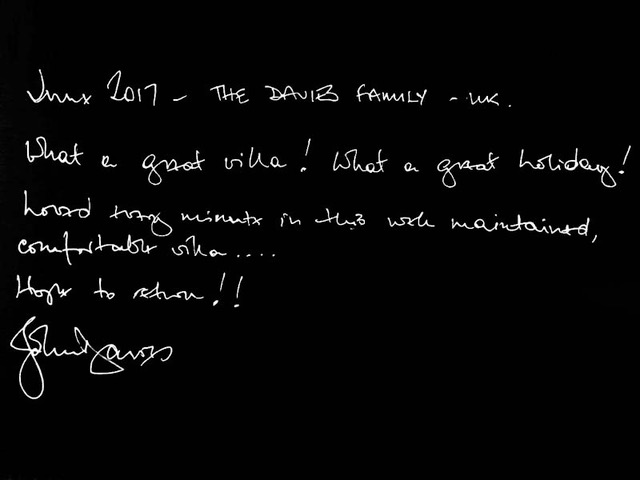 June 2017 - THE DAVIES FAMILY - UK.
What a great villa! What a great holiday!
Loved every minute in this well maintained,
comfortable villa....
Hope to return!!
John Davies